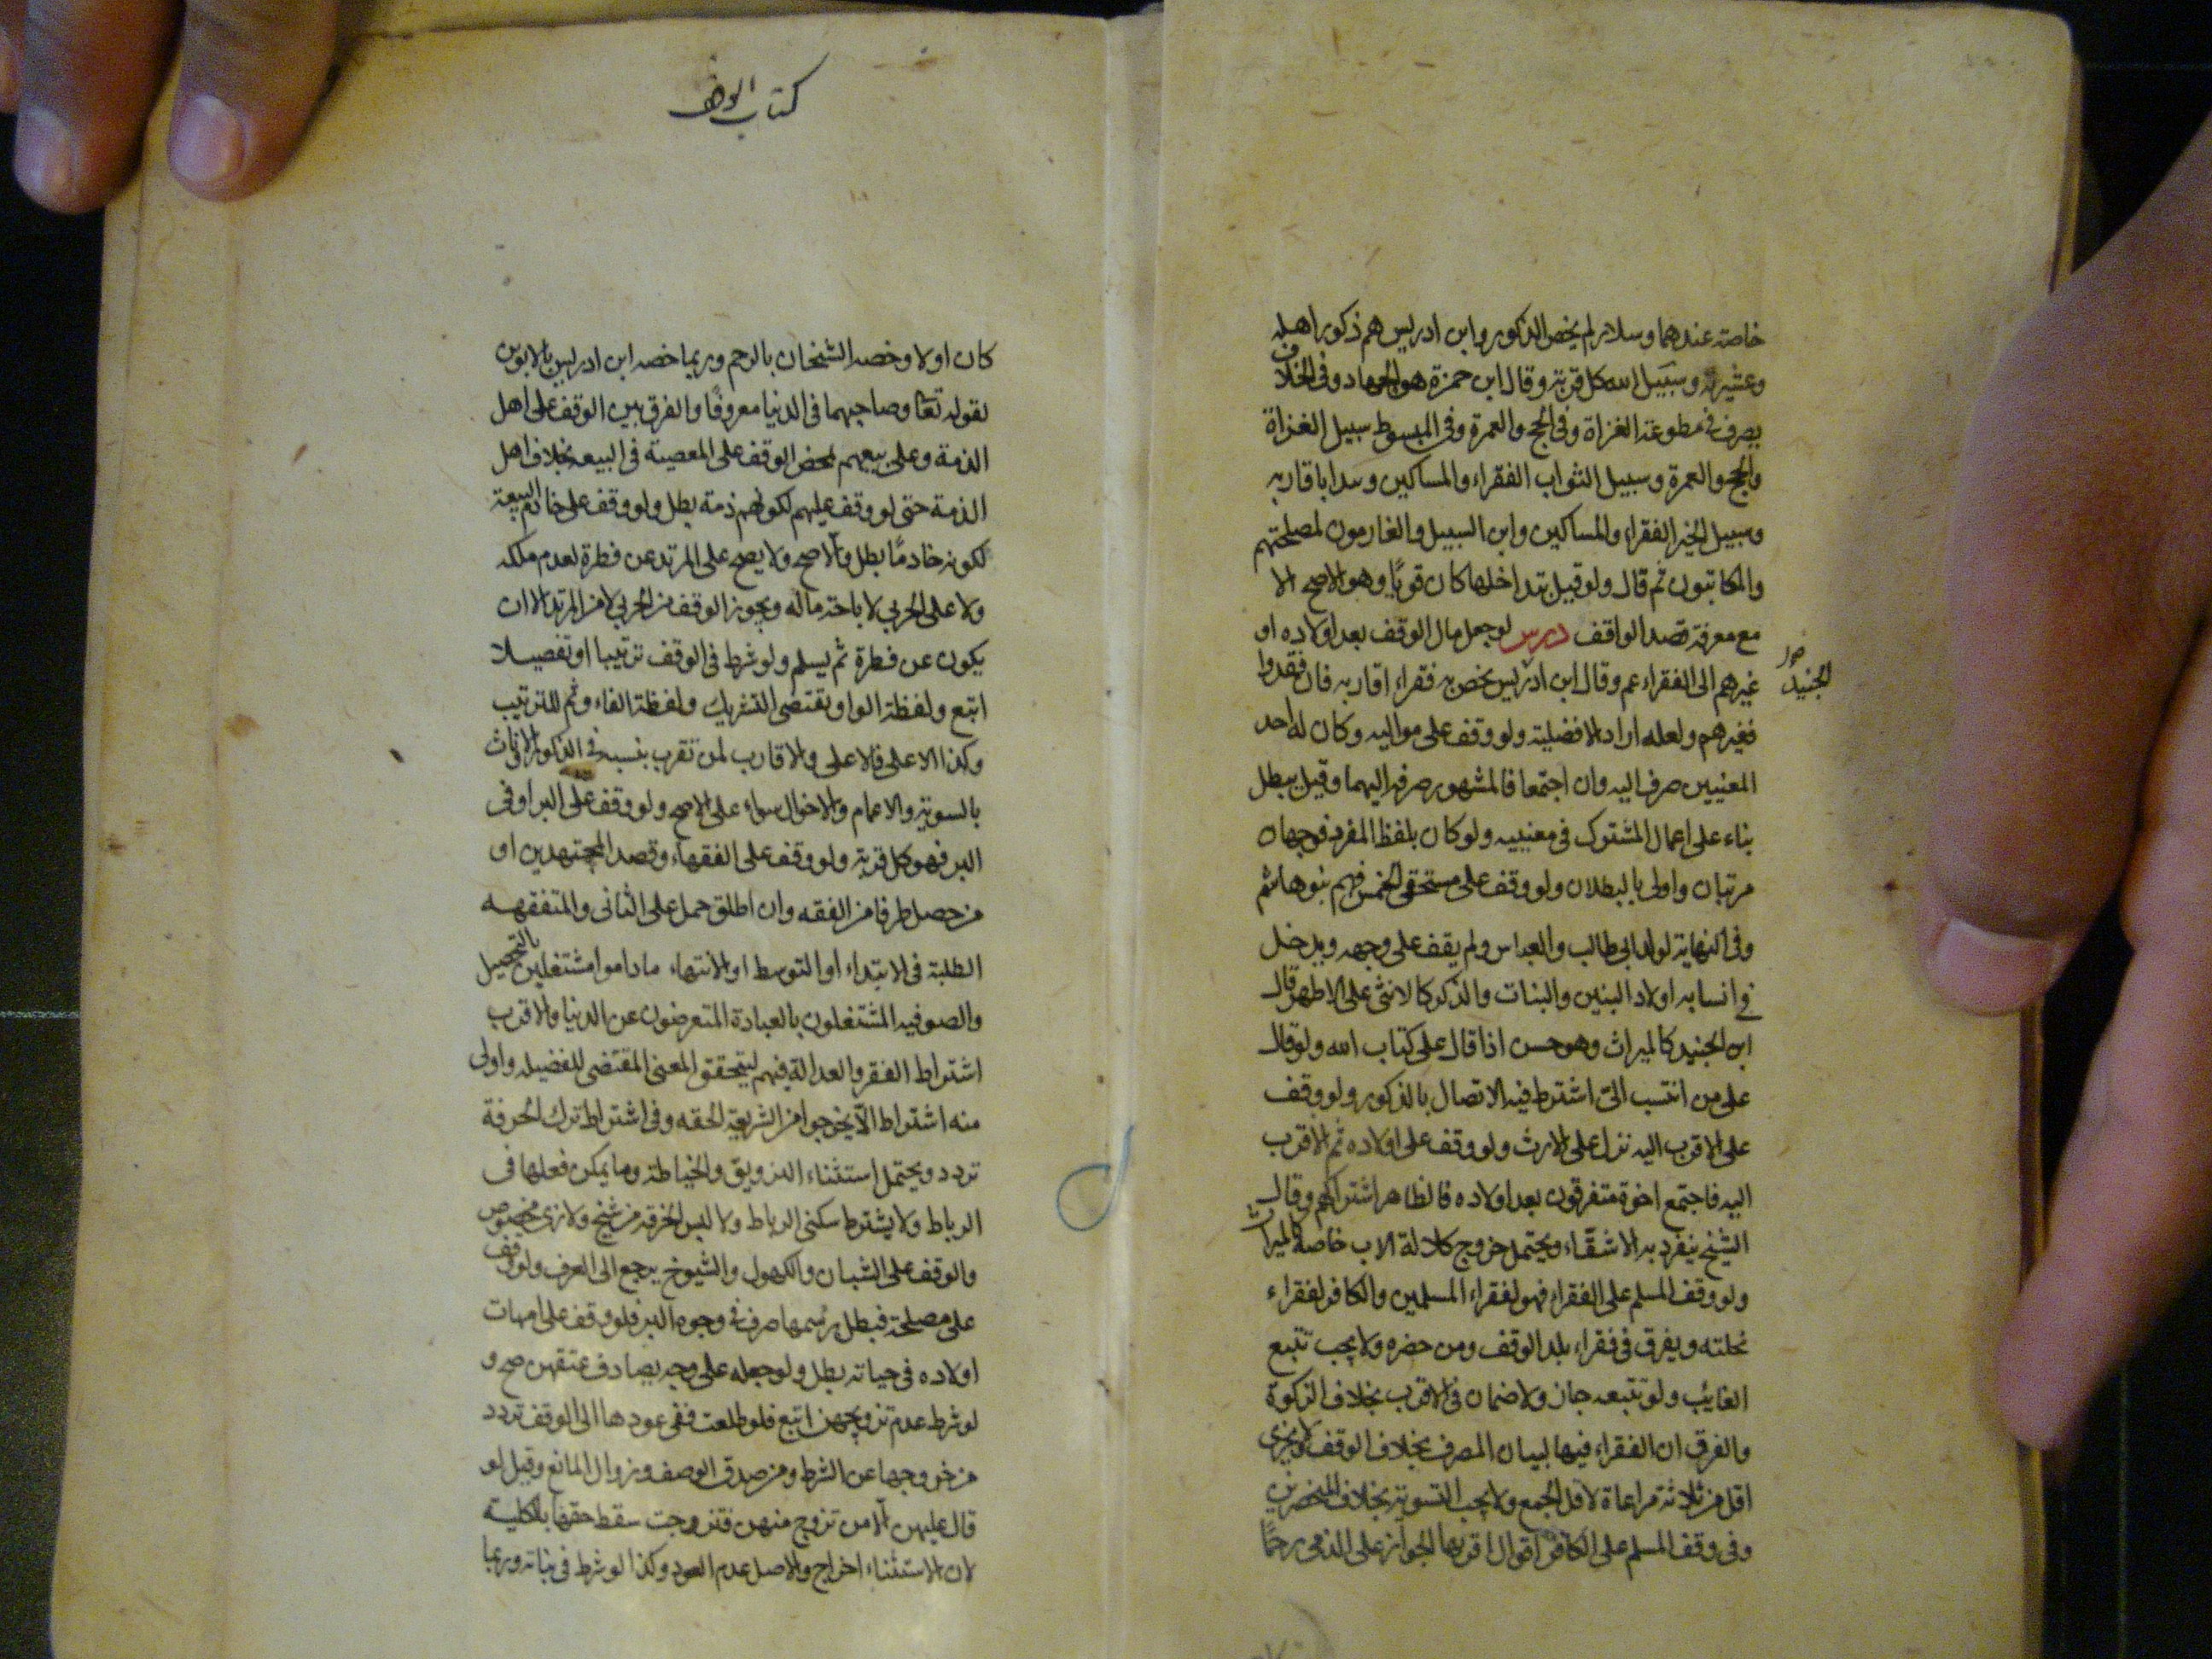 خاصة عندهما وسلار لم يخص الذكور وابن ادريس هم ذكور اهله
وعشيرته وسبيل الله كل قربة وقال ابن حمزة هو الجهاد وفى الخلاف
يصرف فى مطوعة الغزاة وفى الحج والعمرة وفى المبسوط سبيل الغزاة
والحج والعمرة وسبيل الثواب الفقراء والمساكين وبدا باقاربه
وسبيل الخير الفقراء والمساكين وابن السبيل والغارمون لمصلحتهم
والمكاتبون ثم قال ولو قيل بتداخلها كان قويا وهو الاصح الا
مع معرفة قصد الواقف درس لو جعل مال الوقف بعد اولاده او
غيرهم الى الفقراء عم وقال ابن ادريس يخص به فقراء اقاربه فان فقدوا
الجنيد
فغيرهم ولعله اراد الافضلية ولو وقف على مواليه وكان له احد
المعنيين صرف اليه وان اجتمعا فالمشهور صرفه اليهما وقيل يبطل
بناء على اعمال المشترك فى معنييه ولو كان بلفظ المفرد فوجهان
مرتبان واولى بالبطلان ولو وقف على مستحقى الخمس فهم بنو هاشم
وفى النهاية لولد ابى طالب والعباس ولم يقف على وجهه ويدخل
فى انسابه اولاد البنين والبنات والذكر كالانثى على الاظهر وقال
ابن الجنيد كالميراث وهو حسن اذا قال على كتاب الله ولو قال
على من انتسب الىّ اشترط فيه الاتصال بالذكور ولو وقف
على الاقرب اليه نزل على الارث ولو وقف على اولاده ثم الاقرب
اليه فاجتمع اخوة متفرقون بعد اولاده فالظاهر اشتراكهم وقال
الشيخ ينفرد به الاشقاء ويحتمل خروج كلالة الاب خاصة كالميراث
ولو وقف المسلم على الفقراء فهو لفقراء المسلمين والكافر لفقراء
نحلته ويفرق فى فقراء بلد الوقف ومن حضره ولا يجب تتبع
الغائب ولو تتبعه جاز ولا ضمان فى الاقرب بخلاف الزكوة
والفرق ان الفقراء فيها لبيان المصرف بخلاف الوقف ولا يجزى
اقل من ثلاثة مراعاة لاقل الجمع ولا يجب التسوية بخلاف المنحصرين
وفى وقف المسلم على الكافر اقوال اقربها الجواز على الذمى رحمًا
كتاب الوقف
كان او لا وخصه الشيخان بالرحم وربما خصه ابن ادريس بالابوين
لقوله تعا وصاحبهما فى الدنيا معروفًا والفرق بين الوقف على اهل
الذمة وعلى بيعهم لمحض الوقف على المعصية فى البيعه بخلاف اهل
الذمة حتى لو وقف عليهم لكونهم ذمة بطل ولو وقف على خادم البيعة
لكونه خادمًا بطل والا صح ولا يصح على المرتد عن فطرة لعدم ملكه
ولا على الحربى لاباحة ماله ويجوز الوقف من الحربى لا من المرتد الا ان
يكون عن فطرة ثم يسلم ولو شرط فى الوقف ترتيبا او تفصيلا
اتبع ولفظة الواو تقتضى التشريك ولفظة الفاء وثم للترتيب
وكذا الاعلى فالاعلى والاقارب لمن تقرب بنسبه فى الذكور والاناث
بالسوية والاعمام والاخوال سواء على الاصح ولو وقف على البر او فى
البر فهو كل قربة ولو وقف على الفقهاء وقصد المجتهدين او
من حصل طرفا من الفقه وان اطلق حمل على الثانى والمتفقهه
الطلبة فى الابتداء او التوسط او الانتهاء ما داموا مشتغلين بالتحصيل
والصوفيه المشتغلون بالعبادة المتعرضون عن الدنيا والاقرب
اشتراط الفقر والعدالة فيهم ليتحقق المعنى المقتضى للفضيله واولى
منه اشتراط الا يخرجوا من الشريعة الحقه وفى اشتراط ترك الحرفة
تردد ويحتمل استثناء التزويق والخياطة وما يمكن فعلها فى
الرباط ولا يشترط سكنى الرباط ولا لبس الخرقة من شيخ ولا زى مخصوص
والوقف على الشبان والكهول والشيوخ يرجع الى العرف ولو وقف
على مصلحة فبطل رسمها صرف فى وجوه البر فلو وقف على امهات
اولاده فى حياته بطل ولو جعله على وجه يصادف عتقهن صح و
لو شرط عدم تزويجهن اتبع فلو طلعت ففى عودها الى الوقف تردد
من خروجها عن الشرط ومن صدق الوصف وزوال المانع وقيل لو
قال عليهن الا من تزوج منهن فتزوجت سقط حقها بالكلية
لان الاستثناء اخراج والاصل عدم العود وكذا لو شرط فى بناته وربما